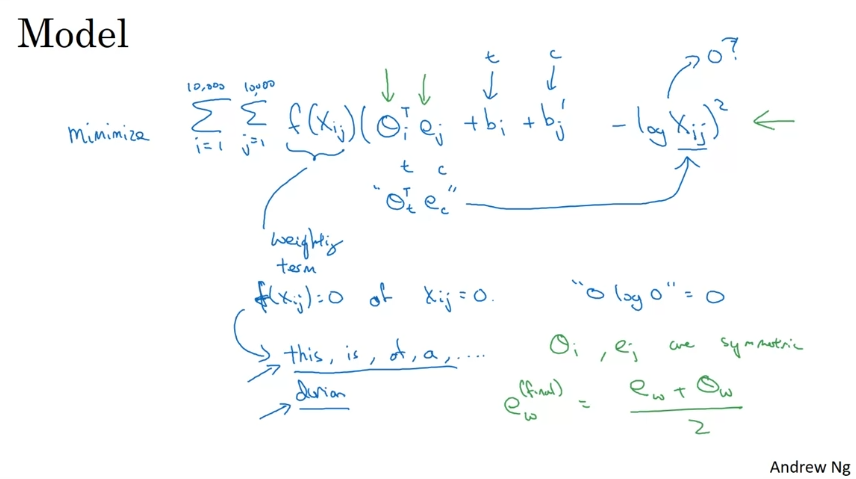 Model
t c 0?
minimize 10,000 Σ i=1 10,000 Σ j=1 f(X_ij) (θ_i^T e_j + b_i + b_j' - log X_ij)^2
t c
"θ_t^T e_c"
weighting
term
f(X_ij) = 0 if X_ij = 0. "0 log 0" = 0
this, is, of, a, ....
durian
θ_i, e_j are symmetric
e_w^(final) = (e_w + θ_w) / 2
Andrew Ng